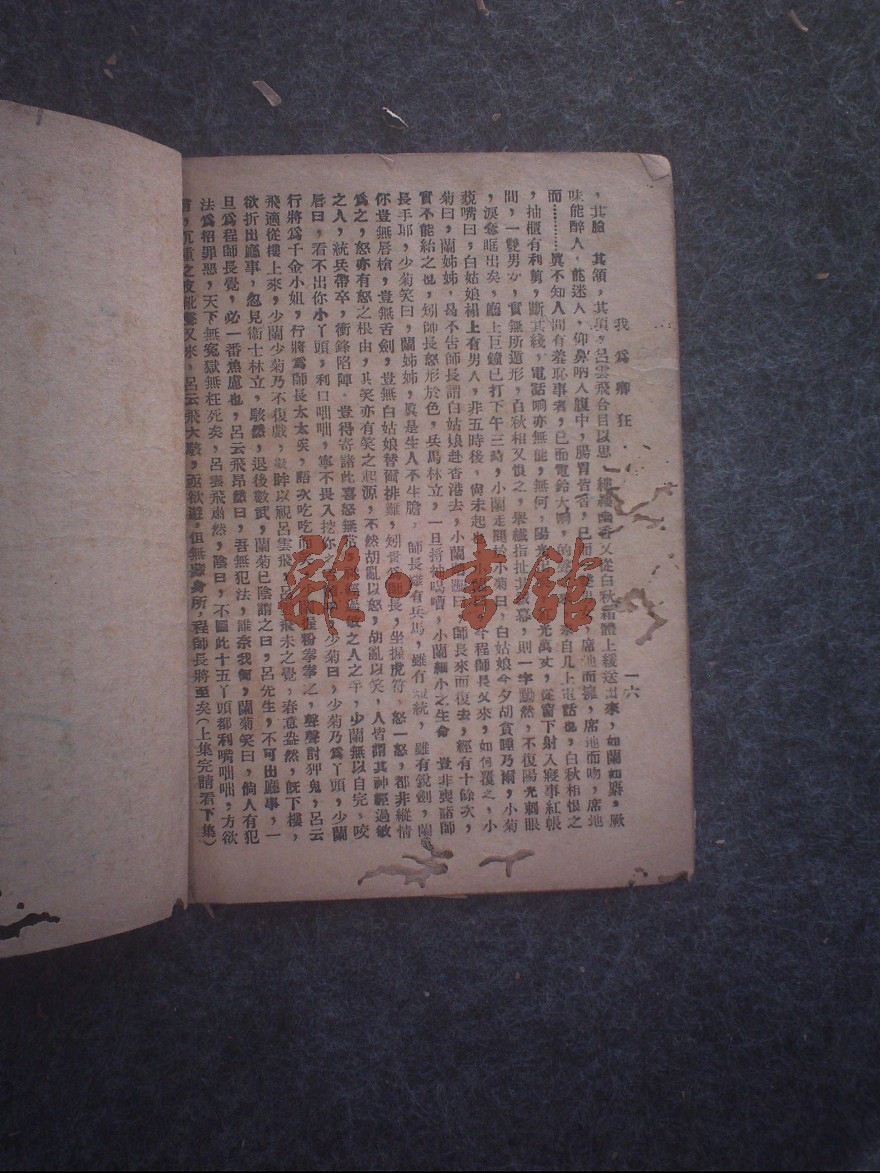 我為卿狂・ 一六
，其臉 其頷，其項，呂雲飛合目以思 一縷縷幽香又從白秋霜體上緩送出來，如蘭如麝，厥
味能醉人，能迷人，仰鼻吶入腹中，腸胃皆香，已而 席地而擁，席地而吻，席地
而………眞不知人間有羞恥事者，已而電鈴大鳴， 來自几上電話也，白秋相恨之
，抽櫃有利剪，斷其綫，電話响亦無能，無何，陽光 光萬丈，從窗下射入寢事紅帳
間，一雙男女，實無所遁形，白秋相又恨之，舉纖指扯 幕，則一字動然，不復陽光刺眼
，淚奪眶出矣，廳上巨鐘已打下午三時，小蘭走闖 小菊曰，白姑娘今夕胡貪睡乃爾，小菊
藐嘴曰，白姑娘榻上有男人，非五時後，尙未起 今程師長又來，如何覆之，小
菊曰，蘭姊姊，曷不告師長謂白姑娘赴香港去，小蘭 曰，師長來而復去，經有十餘次，
實不能紿之也，矧師長怒形於色，兵馬林立，一旦 喝嘈，小蘭細小之生命 豈非喪諸師
長手耶，少菊笑曰，蘭姊姊，眞是生人不生膽， 師長雖有兵馬，雖有短銃，雖有銳劍，蘭
你豈無唇槍，豈無舌劍，豈無白姑娘替爾排難，矧 師長，坐握虎符，怒一怒，都非縱情
爲之，怒亦有怒之根由，其笑亦有笑之起源，不然胡亂以怒，胡亂以笑，人皆謂其神經過敏
之人，統兵帶卒，衝鋒陷陣 豈得寄諸此喜怒無常， 過敏之人之手，少蘭無以自完，咬
唇曰，看不出你小丫頭，利口咄咄，寧不畏入挖你之 少菊曰，少菊乃爲丫頭，少蘭
行將爲千金小姐，行將爲師長太太矣，語次吃吃而 握粉拳拳之，聲聲討狎鬼，呂云
飛適從樓上來，少蘭少菊乃不復戲，凝眸以視呂雲飛， 飛未之覺，春意盎然，旣下樓，
欲折出廳事，忽見衛士林立，駭然，退後數武，蘭菊已陰謂之曰，呂先生，不可出廳事，一
旦爲程師長覺，必一番焦慮也，呂云飛昂然曰，吾無犯法，誰奈我何，蘭菊笑曰，倘人有犯
法爲招罪惡，天下無寃獄無枉死矣，呂雲飛肅然，陰曰，不圖此十五丫頭都利嘴咄咄，方欲
，沉重之皮靴聲又來，呂云飛大駭，亟欲避，但無藏身所，程師長將至矣（上集完請看下集）
雜・書館